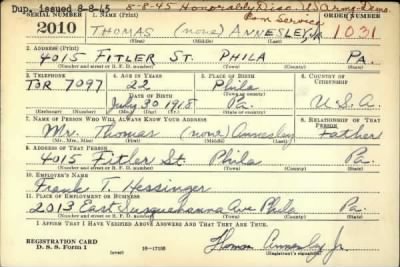 Dup. issued 8-8-45 5-8-45 Honorably Disc. U.S. Army-Dem.
from Service
SERIAL NUMBER 1. NAME (Print) ORDER NUMBER
2010 THOMAS (none) ANNESLEY, JR. 1031
(First) (Middle) (Last)
2. ADDRESS (Print)
4015 FITLER ST. PHILA PA.
(Number and street or R. F. D. number) (Town) (County) (State)
3. TELEPHONE 4. AGE IN YEARS 5. PLACE OF BIRTH 6. COUNTRY OF CITIZENSHIP
TOR 7097 22 Phila
DATE OF BIRTH (Town or county)
July 30 1918 Pa. U.S.A.
(Exchange) (Number) (Mo.) (Day) (Yr.) (State or country)
7. NAME OF PERSON WHO WILL ALWAYS KNOW YOUR ADDRESS 8. RELATIONSHIP OF THAT PERSON
Mr. Thomas (none) Annesley Father
(Mr., Mrs., Miss) (First) (Middle) (Last)
9. ADDRESS OF THAT PERSON
4015 Fitler St. Phila Pa.
(Number and street or R. F. D. number) (Town) (County) (State)
10. EMPLOYER'S NAME
Frank T. Hessinger
11. PLACE OF EMPLOYMENT OR BUSINESS
2013 East Susquehanna Ave Phila Pa.
(Number and street or R. F. D. number) (Town) (County) (State)
I AFFIRM THAT I HAVE VERIFIED ABOVE ANSWERS AND THAT THEY ARE TRUE.
REGISTRATION CARD
D. S. S. Form 1 16-17105 Thomas Annesley Jr.
(Registrant's signature)